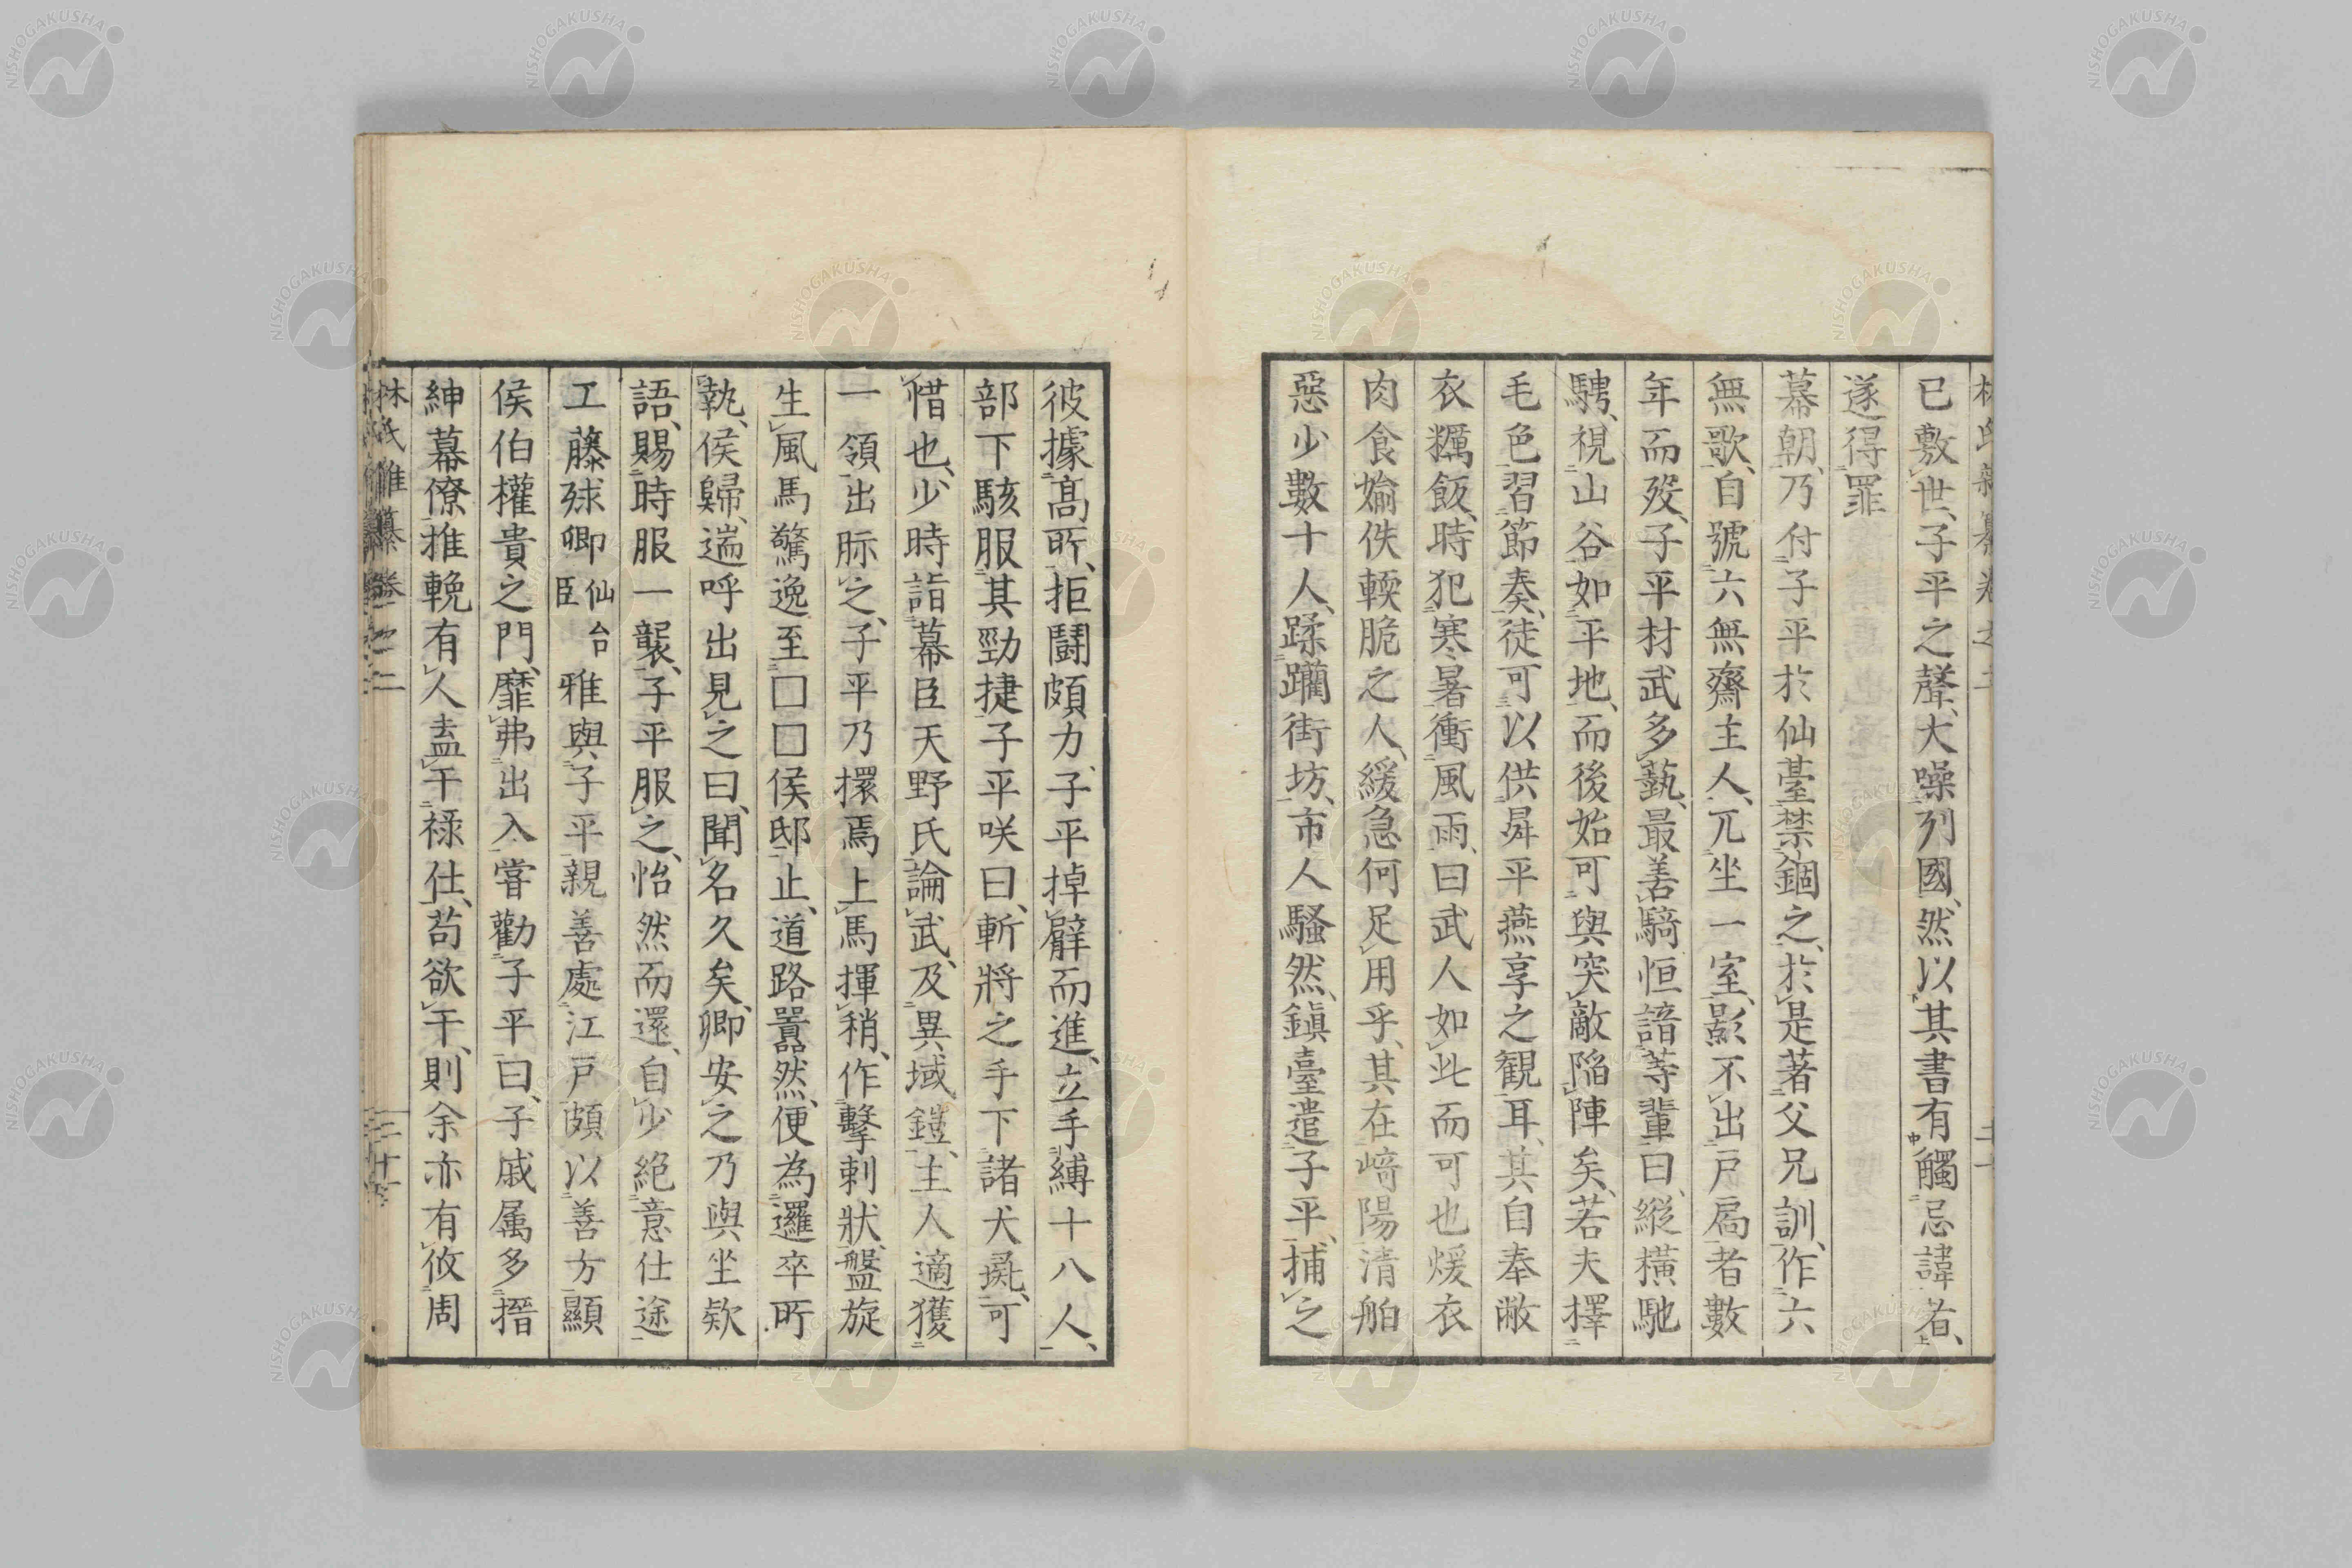 已敷世、子平之聲、大噪列國、然以其書有觸忌諱者、
遂得罪
幕朝、乃付子平於仙臺禁錮之、於是著父兄訓、作六
無歌、自號六無齋主人、兀坐一室、影不出戸扃者數
年而歿、子平材武多藝、最善騎恒諳等輩曰、縱橫馳
騁、視山谷如平地、而後始可與突敵陷陣矣、若夫擇
毛色習節奏、徒可以供昇平燕享之観耳、其自奉敝
衣糲飯、時犯寒暑衝風雨、曰武人如此而可也煖衣
肉食婾佚輭脆之人、緩急何足用乎、其在﨑陽清舶
惡少數十人、蹂躪街坊、市人騷然、鎮臺遣子平、捕之
彼據高所、拒鬪頗力、子平掉臂而進、立手縛十八人、
部下駭服其勁捷子平咲曰、斬將之手下諸犬彘、可
惜也、少時詣幕臣天野氏論武、及異域鎧、主人適獲
一領出眎之、子平乃擐焉上馬揮稍、作擊刺狀、盤旋
生風馬驚逸至囗囗侯邸止、道路囂然、便為邏卒所
執、侯歸、遄呼出見之曰、聞名久矣、卿安之乃與坐欵
語、賜時服一襲、子平服之、怡然而還、自少絕意仕途
工藤球卿仙台臣雅與子平親善處江戸頗以善方顯
侯伯權貴之門、靡弗出入嘗勸子平曰、子戚属多搢
紳幕僚推輓有人盍干祿仕、苟欲干、則余亦有攸周
林氏雜纂卷之二
二十
林氏雜纂卷之二
二十一
NISHOGAKUSHA